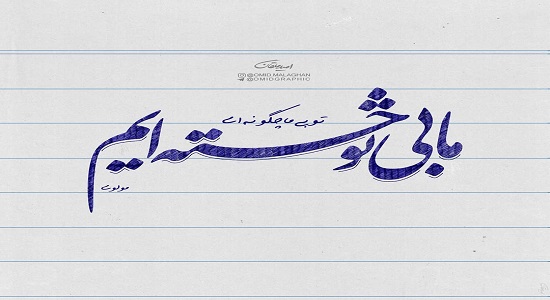 @OMID.MALAGHAN
@OMIDGRAPHIC
تو بی ما چگونه ای
ما بی تو خسته ایم
مولوی